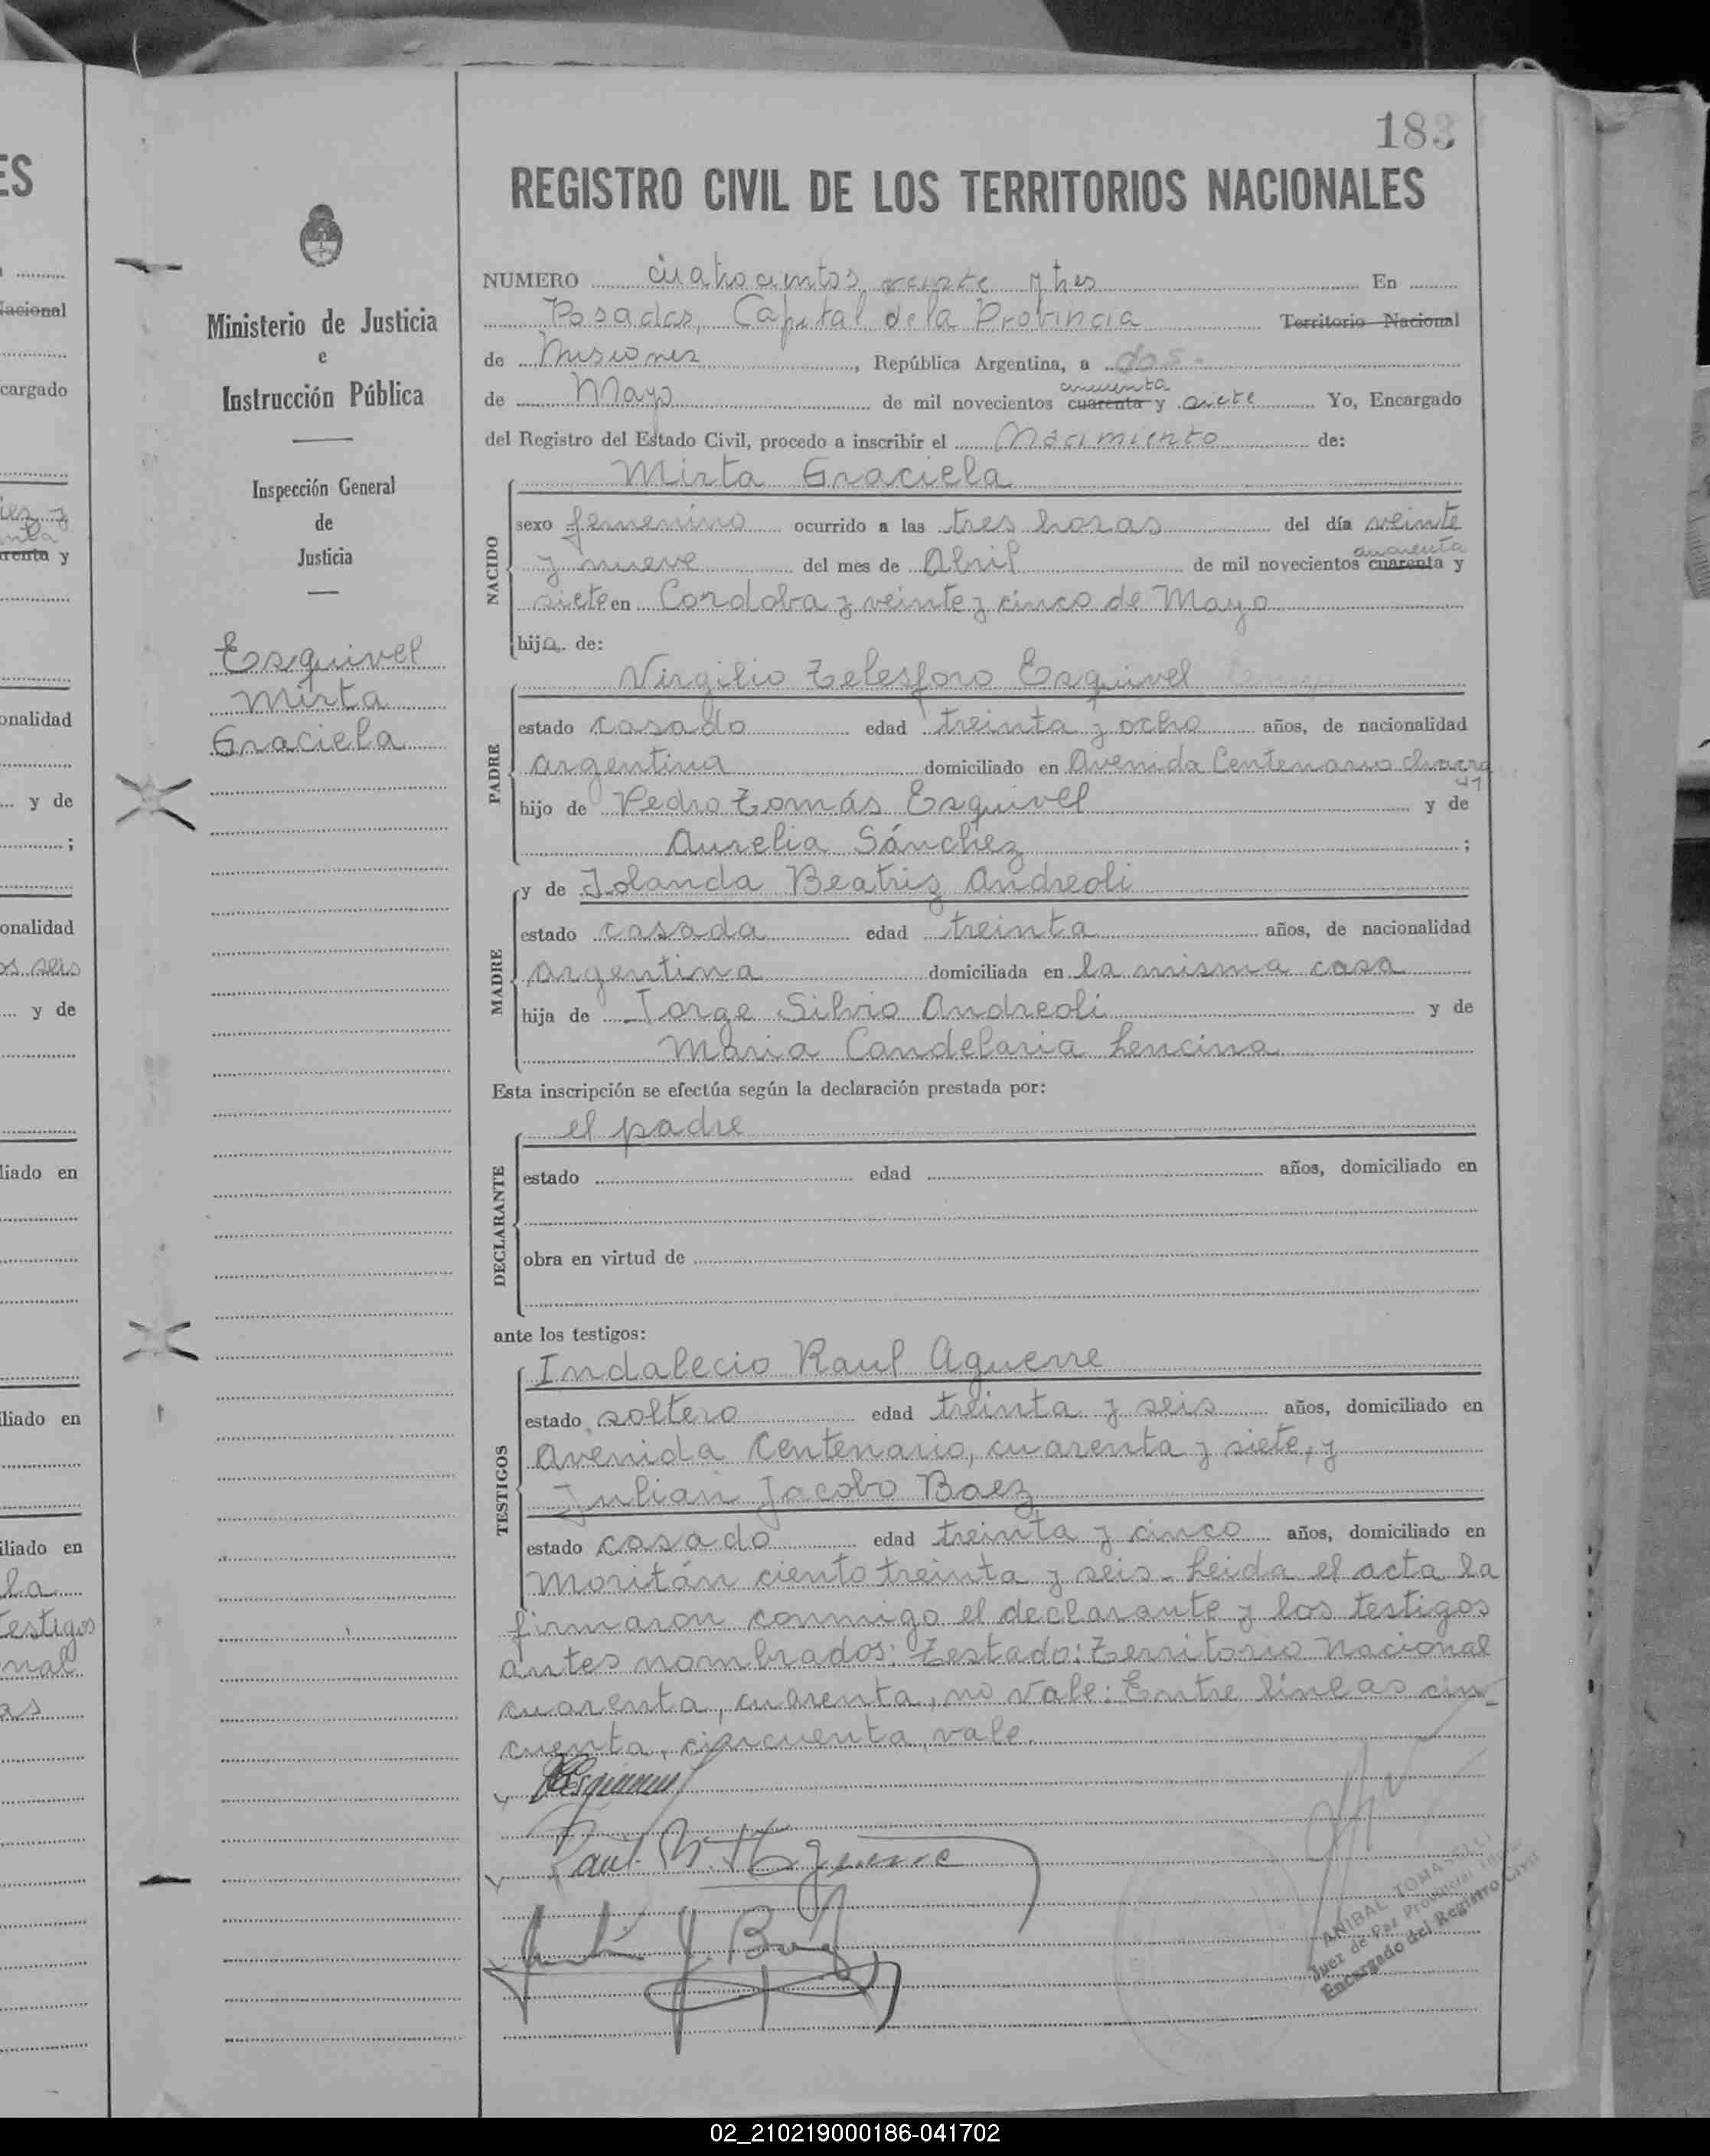 183
REGISTRO CIVIL DE LOS TERRITORIOS NACIONALES
Ministerio de Justicia
e
Instrucción Pública
Inspección General
de
Justicia
Esquivel
Mirta
Graciela
NUMERO cuatrocientos veinte y tres En
Posadas, Capital de la Provincia Territorio Nacional
de Misiones, República Argentina, a dos-
cincuenta
de Mayo de mil novecientos cuarenta y siete Yo, Encargado
del Registro del Estado Civil, procedo a inscribir el Nacimiento de:
NACIDO
Mirta Graciela
sexo femenino ocurrido a las tres horas del día veinte
y nueve del mes de Abril de mil novecientos cuarenta y
siete en Cordoba y veinte y cinco de Mayo
hija de:
PADRE
Virgilio Telesforo Esquivel
estado casado edad treinta y ocho años, de nacionalidad
argentina domiciliado en Avenida Centenario chacra
hijo de Pedro Tomás Esquivel y de
Aurelia Sánchez ;
MADRE
y de Iolanda Beatriz Andreoli
estado casada edad treinta años, de nacionalidad
argentina domiciliada en la misma casa
hija de Jorge Silvio Andreoli y de
Maria Candelaria Lencina
Esta inscripción se efectúa según la declaración prestada por:
DECLARANTE
el padre
estado edad años, domiciliado en
obra en virtud de
ante los testigos:
TESTIGOS
Indalecio Raul Aguerre
estado soltero edad treinta y seis años, domiciliado en
Avenida Centenario, cuarenta y siete, y
Julian Jacobo Baez
estado casado edad treinta y cinco años, domiciliado en
Moritán ciento treinta y seis- Leida el acta la
firmaron conmigo el declarante y los testigos
antes nombrados: Testado: Territorio Nacional
cuarenta, cuarenta, no vale: Entre lineas cin-
cuenta, cincuenta, vale.
ANIBAL TOMASELLI
Juez de Paz Provincial
Encargado del Registro Civil
02_210219000186-041702